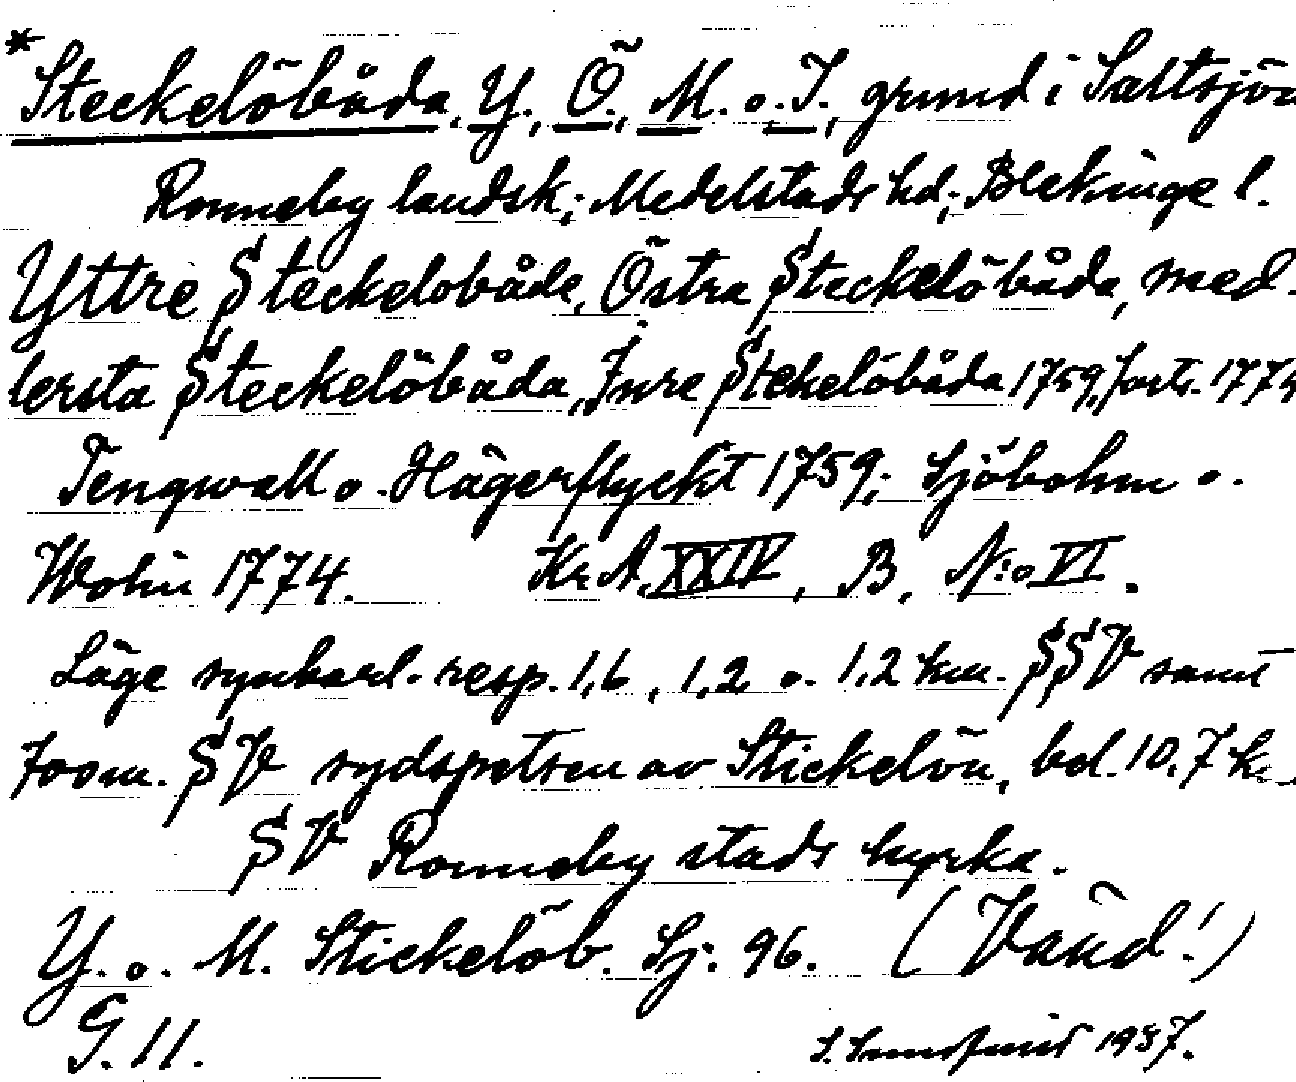 *Steckelöbåda, Y., Ö., M. o. I., grund i Saltsjön
Ronneby landsk; Medelstads hd; Blekinge l.
Yttre Steckelobåde, Östra Steckelöbåda, med-
lersta Steckelöbåda, Inre Steckelöbåda 1759, 1774
Tengwall o. Hägerflyckt 1759; Sjöbohm o.
Wohn 1774. Kr. A. XXIV, B, N:o VI.
Läge synbarl. resp. 1,6, 1,2 o. 1,2 km. SSV samt
700 m. SV sydspetsen av Stickelön, bel. 10,7 k
SV Ronneby stads kyrka.
Y. o. M. Stickelöb. Sj. 96. (Vänd!)
G. 11.
1937.